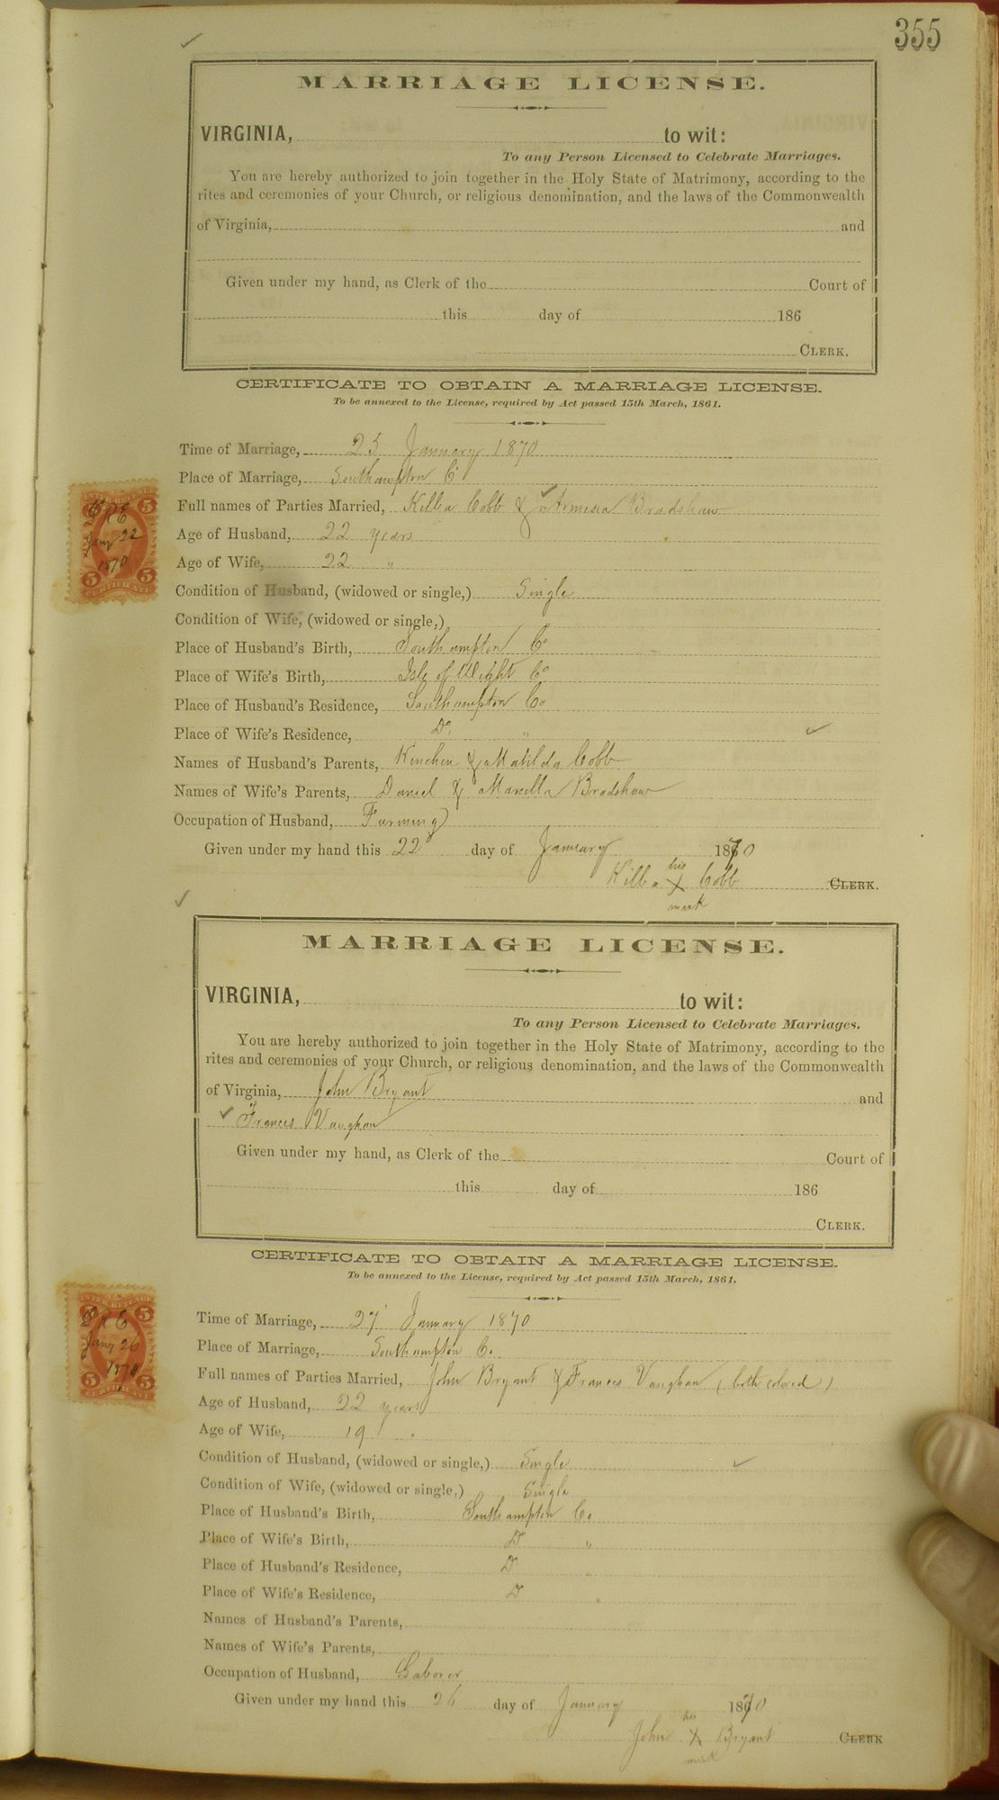 355
MARRIAGE LICENSE.
VIRGINIA, to wit:
To any Person Licensed to Celebrate Marriages.
You are hereby authorized to join together in the Holy State of Matrimony, according to the
rites and ceremonies of your Church, or religious denomination, and the laws of the Commonwealth
of Virginia, and
Given under my hand, as Clerk of the Court of
this day of 186
CLERK.
CERTIFICATE TO OBTAIN A MARRIAGE LICENSE.
To be annexed to the License, required by Act passed 15th March, 1861.
Time of Marriage, 25 January 1870
Place of Marriage, Southampton Co
Full names of Parties Married, Killba Cobb & Armesia Bradshaw
Age of Husband, 22 years
Age of Wife, 22 "
Condition of Husband, (widowed or single,) Single
Condition of Wife, (widowed or single,)
Place of Husband's Birth, Southampton Co
Place of Wife's Birth, Isle of Wight Co
Place of Husband's Residence, Southampton Co
Place of Wife's Residence, Do "
Names of Husband's Parents, Kinchen & Matilda Cobb
Names of Wife's Parents, Daniel & Bradshaw
Occupation of Husband, Farming
Given under my hand this 22 day of January 1870
his
Killba X Cobb CLERK.
mark
5 5
Jany 22
1870
5 CERTIFICATE 5
MARRIAGE LICENSE.
VIRGINIA, to wit:
To any Person Licensed to Celebrate Marriages.
You are hereby authorized to join together in the Holy State of Matrimony, according to the
rites and ceremonies of your Church, or religious denomination, and the laws of the Commonwealth
of Virginia, John Bryant and
Frances Vaughan
Given under my hand, as Clerk of the Court of
this day of 186
CLERK.
CERTIFICATE TO OBTAIN A MARRIAGE LICENSE.
To be annexed to the License, required by Act passed 15th March, 1861.
Time of Marriage, 27 January 1870
Place of Marriage, Southampton Co.
Full names of Parties Married, John Bryant & Frances Vaughan (both colored)
Age of Husband, 22 years
Age of Wife, 19 "
Condition of Husband, (widowed or single,) Single
Condition of Wife, (widowed or single,) Single
Place of Husband's Birth, Southampton Co.
Place of Wife's Birth, Do "
Place of Husband's Residence, Do "
Place of Wife's Residence, Do "
Names of Husband's Parents,
Names of Wife's Parents,
Occupation of Husband, Laborer
Given under my hand this 26 day of January 1870
his
John X Bryant CLERK
mark
5 5
Jany 26
1870
5 CERTIFICATE 5